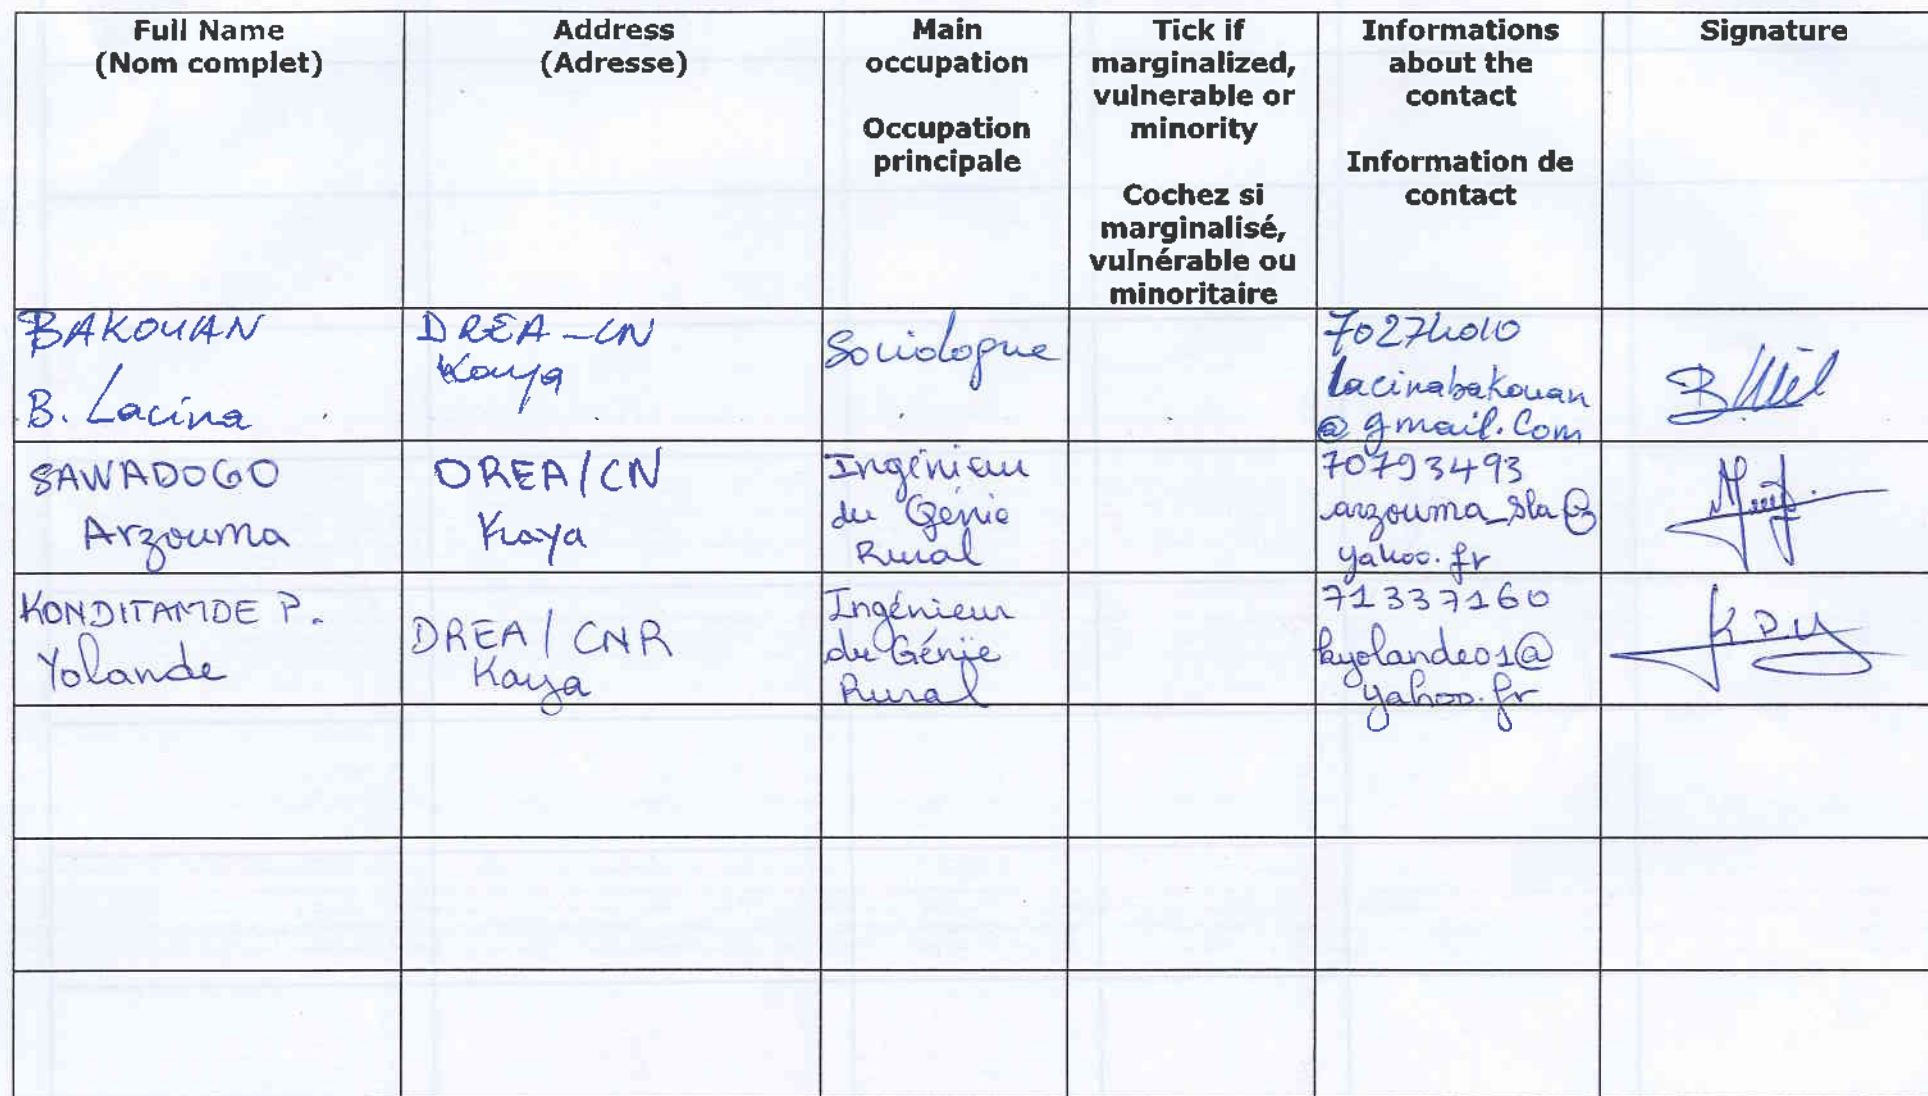 Full Name
(Nom complet)
Address
(Adresse)
Main
occupation
Occupation
principale
Tick if
marginalized,
vulnerable or
minority
Cochez si
marginalisé,
vulnérable ou
minoritaire
Informations
about the
contact
Information de
contact
Signature
BAKOUAN
B. Lacina
DREA-CN
Kaya
Sociologue
70274010
lacinabakouan
@gmail.com
SAWADOGO
Arzouma
DREA/CN
Kaya
Ingénieur
du Génie
Rural
70793493
arzouma_sla@
yahoo.fr
KONDITAMDE P.
Yolande
DREA/CNR
Kaya
Ingénieur
du Génie
Rural
71337160
kyolande01@
yahoo.fr
KPY